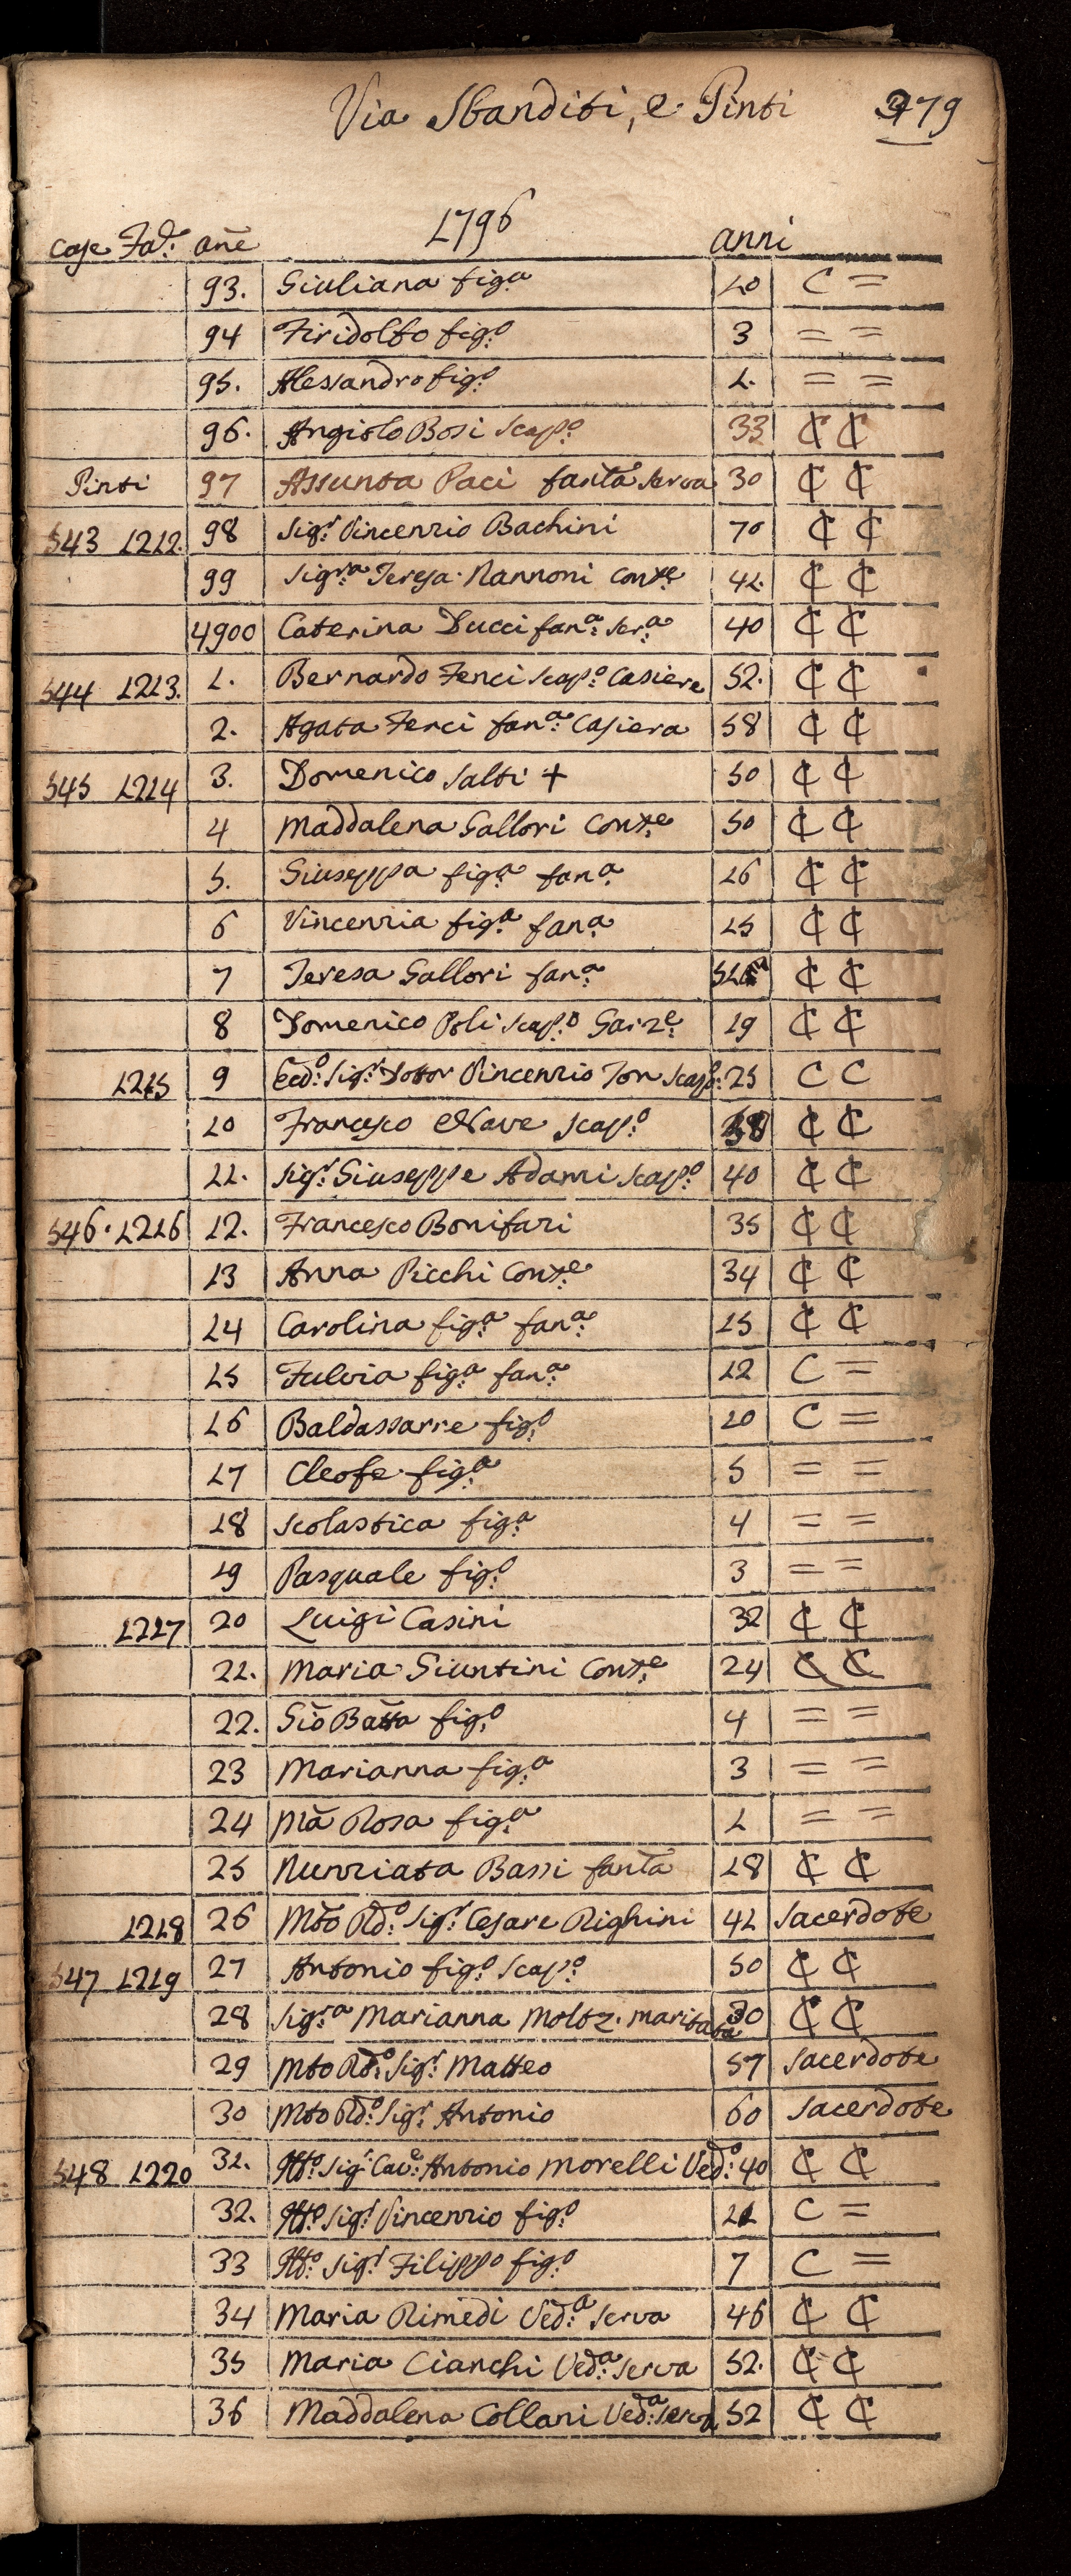 Via Sbanditi, e Pinti 479
1796
Case Fa: añe anni
93. Giuliana fig:a 10 C =
94 Firidolfo fig:o 3 = =
95. Alessandro fig:o 1. = =
96. Angiolo Bosi Scap:o 33 ₵ ₵
Pinti 97 Assunta Paci fanta Serva 30 ₵ ₵
543 1212. 98 Sig:r Vincenzio Bachini 70 ₵ ₵
99 Sig:ra Teresa Nannoni Cons:te 41. ₵ ₵
4900 Caterina Ducci fan:a Ser:a 40 ₵ ₵
544 1213. 1. Bernardo Fenci Scap:o Casiere 52. ₵ ₵
2. Agata Fenci fan:a Casiera 58 ₵ ₵
545 1214 3. Domenico Salti + 50 ₵ ₵
4 Maddalena Gallori Cons:te 50 ₵ ₵
5. Giuseppa fig:a fan:a 16 ₵ ₵
6 Vincenzia fig:a fan:a 15 ₵ ₵
7 Teresa Gallori fan:a ₵ ₵
8 Domenico Poli Scap:o Garz:e 19 ₵ ₵
1215 9 Ecc:o Sig:r Dotor Vincenzio Ton Scap:o 25 C C
10 Francesco Nave Scap:o ₵ ₵
11. Sig:r Giuseppe Adami Scap:o 40 ₵ ₵
546. 1216 12. Francesco Bonifazi 35 ₵ ₵
13 Anna Picchi Cons:te 34 ₵ ₵
14 Carolina fig:a fan:a 15 ₵ ₵
15 Fulvia fig:a fan:a 12 C =
16 Baldassarre fig:o 10 C =
17 Cleofe fig:a 5 = =
18 Scolastica fig:a 4 = =
19 Pasquale fig:o 3 = =
1217 20 Luigi Casini 32 ₵ ₵
21. Maria Giuntini Cons:te 24 ₵ ₵
22. Gio Batta fig:o 4 = =
23 Marianna fig:a 3 = =
24 Ma Rosa fig:a 1 = =
25 Nunziata Bassi fanta 18 ₵ ₵
1218 26 Mto Rd:o Sig:r Cesare Righini 41 Sacerdote
547 1219 27 Antonio fig:o Scap:o 50 ₵ ₵
28 Sig:ra Marianna Moltz. maritata 30 ₵ ₵
29 Mto Rd:o Sig:r Matteo 57 Sacerdote
30 Mto Rd:o Sig:r Antonio 60 Sacerdote
548 1220 31. Ill:o Sig:r Cav:e Antonio Morelli Ved:o 40 ₵ ₵
32. Ill:o Sig:r Vincenzio fig:o 11 C =
33 Ill:o Sig:r Filippo fig:o 7 C =
34 Maria Rimedi Ved:a Serva 46 ₵ ₵
35 Maria Cianchi Ved:a Serva 52. ₵ ₵
36 Maddalena Collani Ved:a Serva 52 ₵ ₵